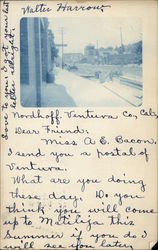 Walter Harrow
Love to you. I got your last
letter alright.
Nordhoff, Ventura Co, Cal,
Dear Friend:
Miss A. C. Bacon,
I send you a postal of
Ventura.
What are you doing
these day. Do you
think you will come
up to Matilija this
Summer if you do I
will see you later,